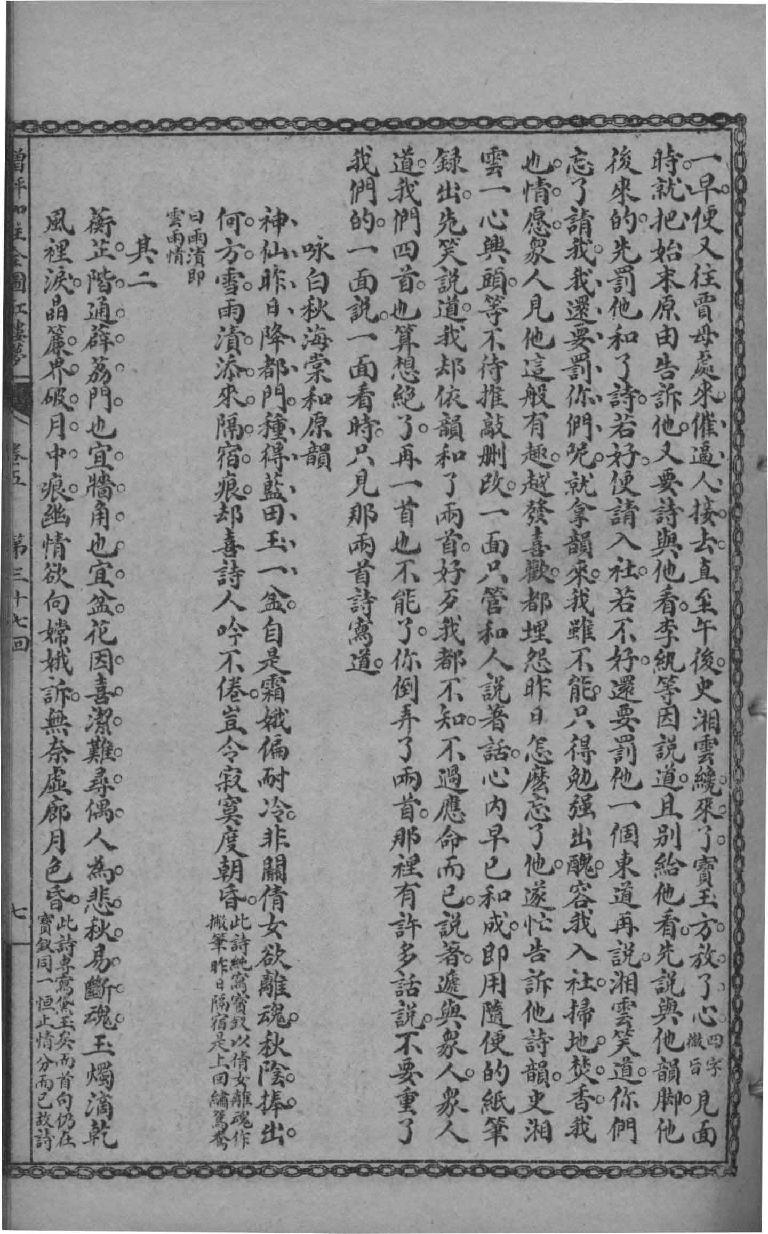 一早便又往賈母處來催逼人接去直至午後史湘雲纔來了寶玉方放了心四字徵旨見面
時就把始末原由告訴他又要詩與他看李紈等因說道且別給他看先說與他韻脚他
後來的先罰他和了詩若好便請入社若不好還要罰他一個東道再說湘雲笑道你們
忘了請我我還要罰你們呢就拿韻來我雖不能只得勉强出醜容我入社掃地焚香我
也情愿衆人見他這般有趣越發喜歡都埋怨昨日怎麽忘了他遂忙告訴他詩韻史湘
雲一心興頭等不待推敲刪改一面只管和人說著話心內早已和成即用隨便的紙筆
録出先笑說道我却依韻和了兩首好歹我都不知不過應命而已說著遞與衆人衆人
道我們四首也算想絕了再一首也不能了你倒弄了兩首那裡有許多話說不要重了
我們的一面說一面看時只見那兩首詩寫道
咏白秋海棠和原韻
神仙昨日降都門種得藍田玉一盆自是霜娥偏耐冷非關倩女欲離魂秋陰捧出
何方雪雨漬添來隔宿痕却喜詩人吟不倦豈令寂寞度朝昏此詩純寫寶釵以倩女離魂作搬筆昨日隔宿是上回繡鴛鴦
曰雨漬即雲雨情
其二
蘅芷階通薜荔門也宜牆角也宜盆花因喜潔難尋偶人為悲秋易斷魂玉燭滴乾
風裡淚晶簾界破月中痕幽情欲向嫦娥訴無奈虛廊月色昏此詩專寫黛玉矣而首句仍在寶釵同一恒止情分而已故詩
增評加註全圖紅樓夢
卷五
第三十七回
七